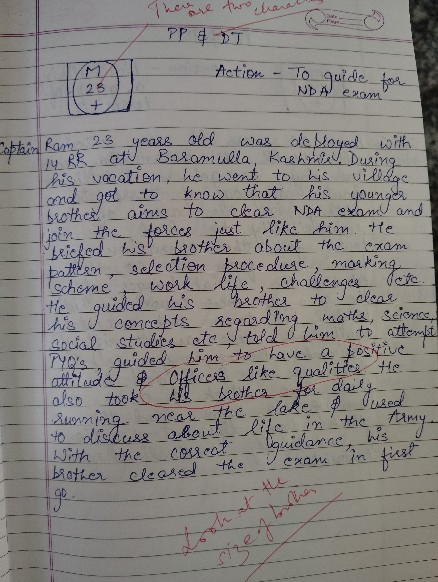 There are two characters
PP & DT
M
23
+
Action - To guide for
NDA exam
Captain Ram 23 years old was deployed with
14 RR at Baramulla, Kashmir. During
his vacation, he went to his village
and got to know that his younger
brother aims to clear NDA exam and
join the forces just like him. He
briefed his brother about the exam
pattern, selection procedure, marking
scheme, work life, challenges etc.
He guided his brother to clear
his concepts regarding maths, science,
social studies etc told him to attempt
PYQ's, guided him to have a positive
attitude & Officers like qualities. He
also took his brother for daily
running near the lake & used
to discuss about life in the Army
With the correct guidance, his
brother cleared the exam in first
go.
Look at the
size of brother